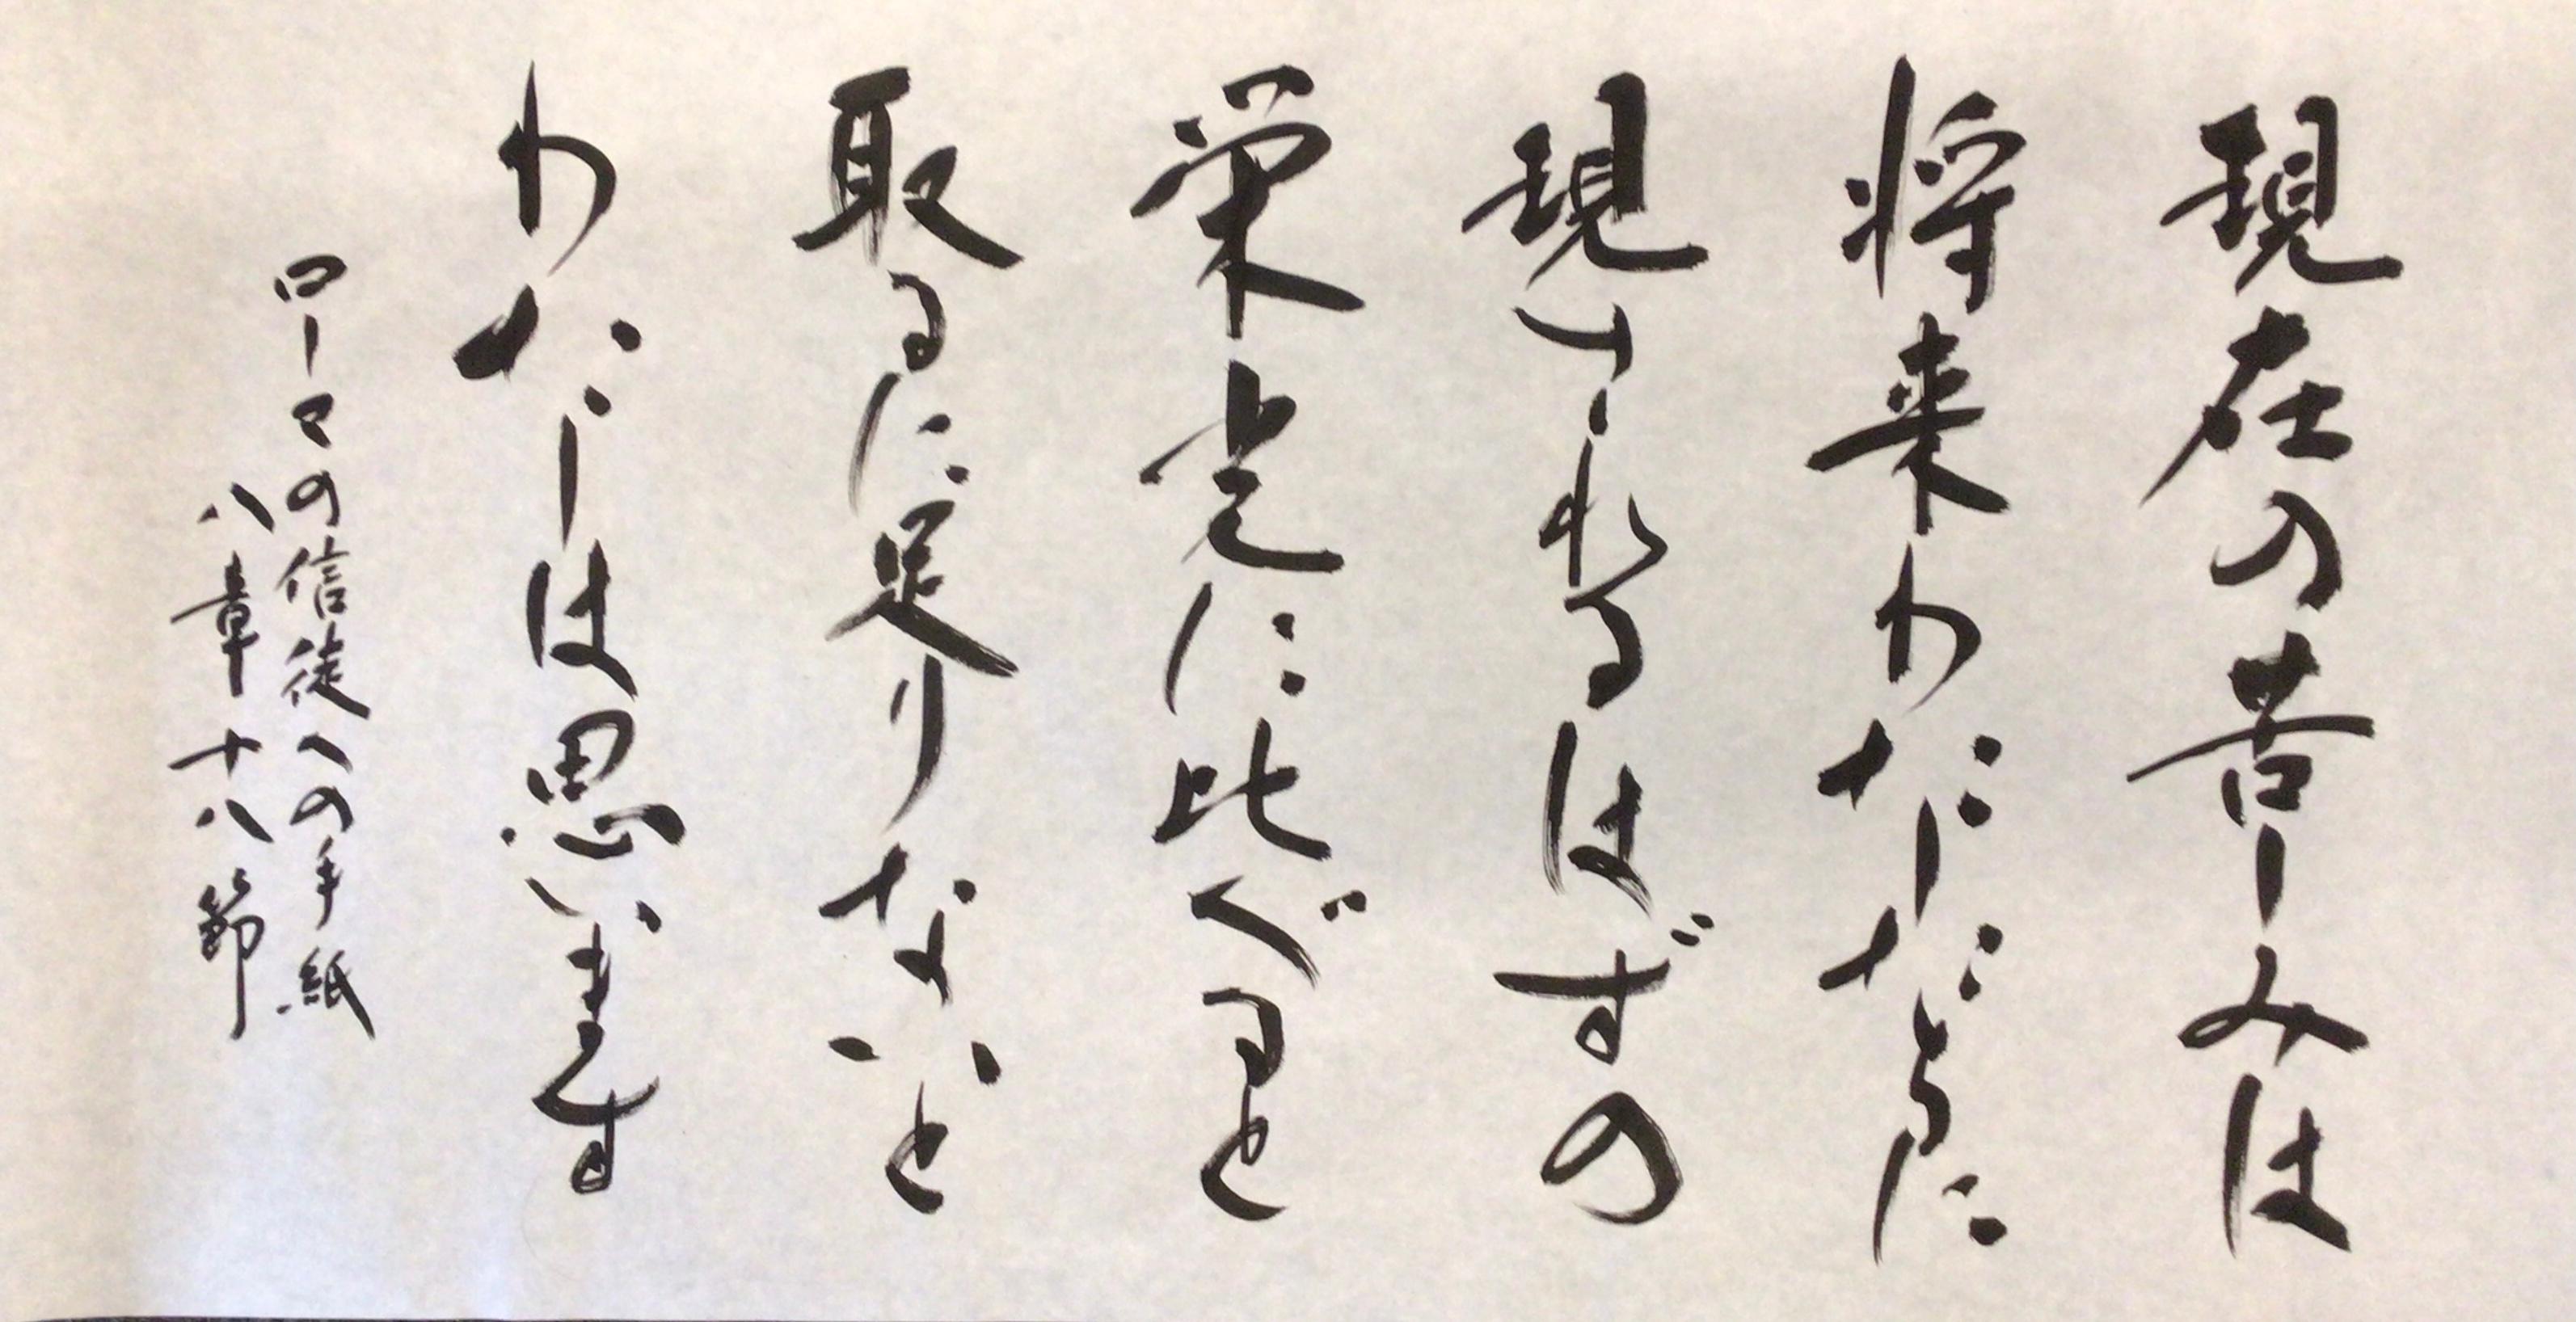 現在の苦しみは
将来わたしたちに
現されるはずの
栄光に比べると
取るに足りないと
わたしは思います
ローマの信徒への手紙
八章十八節